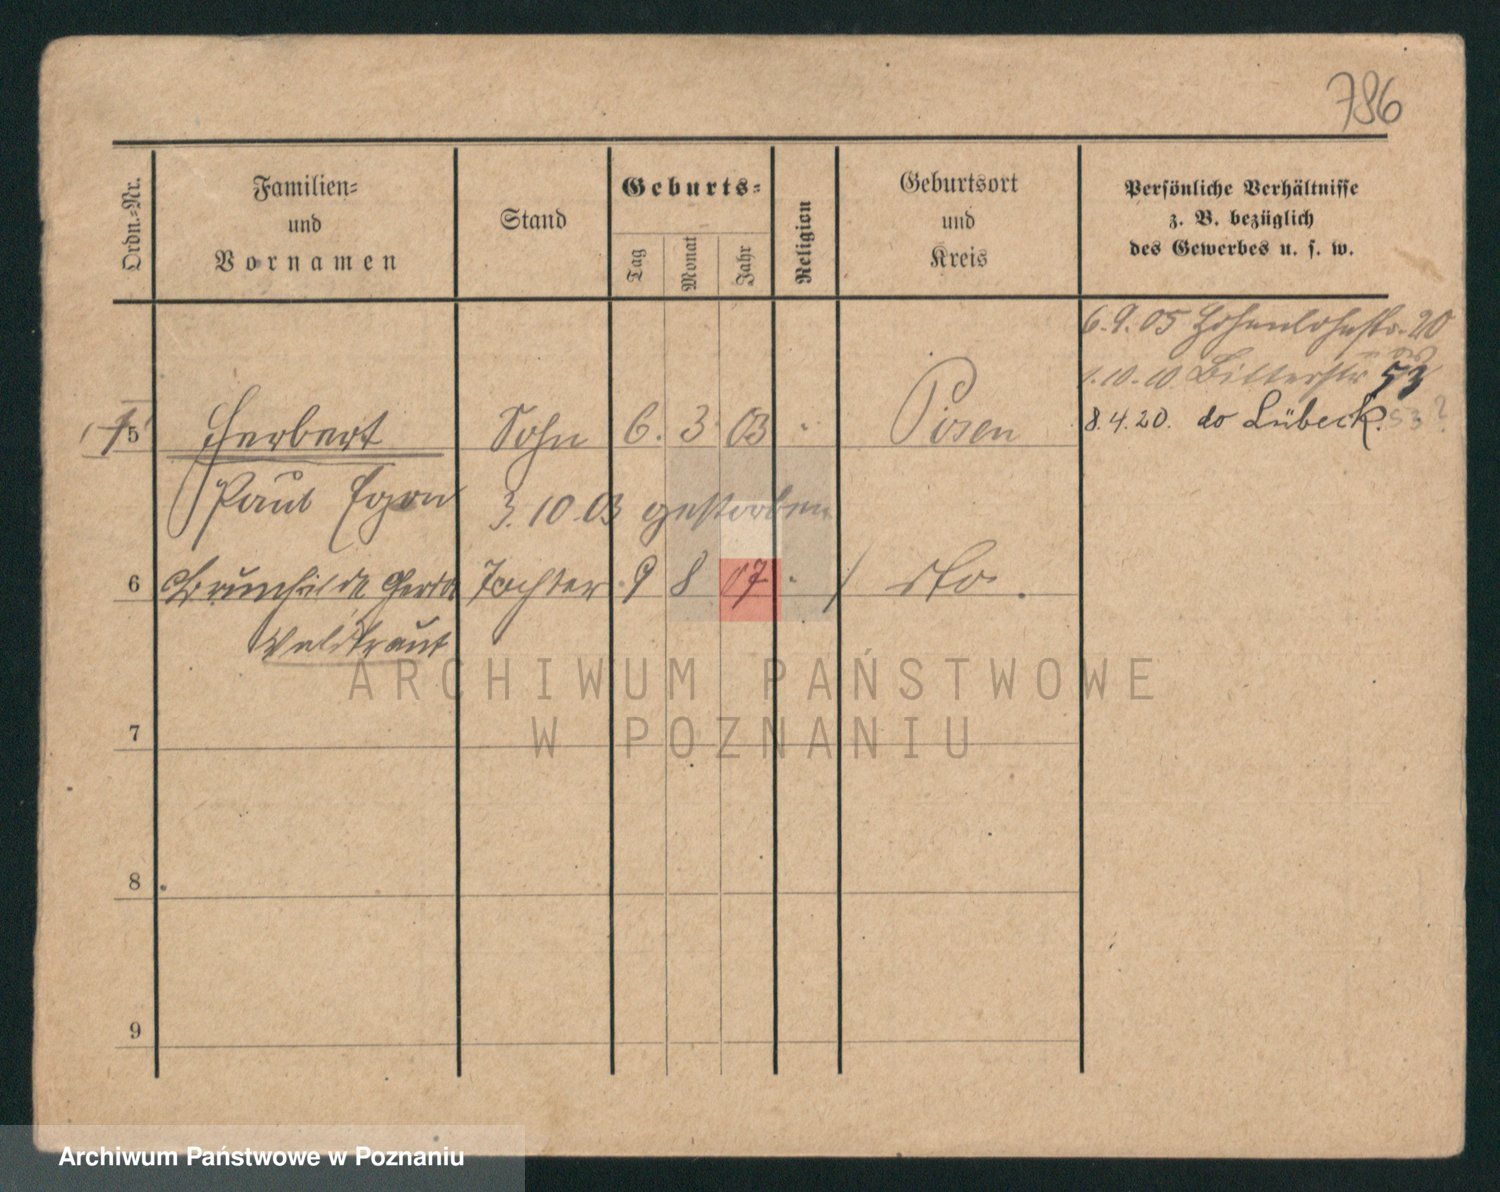 786
Ordn.-Nr.
Familien-
und
Vornamen
Stand
Geburts-
Tag
Monat
Jahr
Religion
Geburtsort
und
Kreis
Persönliche Verhältnisse
z. B. bezüglich
des Gewerbes u. s. w.
6.9.05 Hohenlohestr. 20
1.10.10 Bitterstr 53
5 Herbert Sohn 6. 3 03 " Posen
8.4.20. do Lübeck. 53?
Paul Egon 3.10.03 gestorben
6 Brunhilde Gerda Tochter 9 8 07 " dto.
Waldtraut
ARCHIWUM PAŃSTWOWE
W POZNANIU
7
8
9
Archiwum Państwowe w Poznaniu